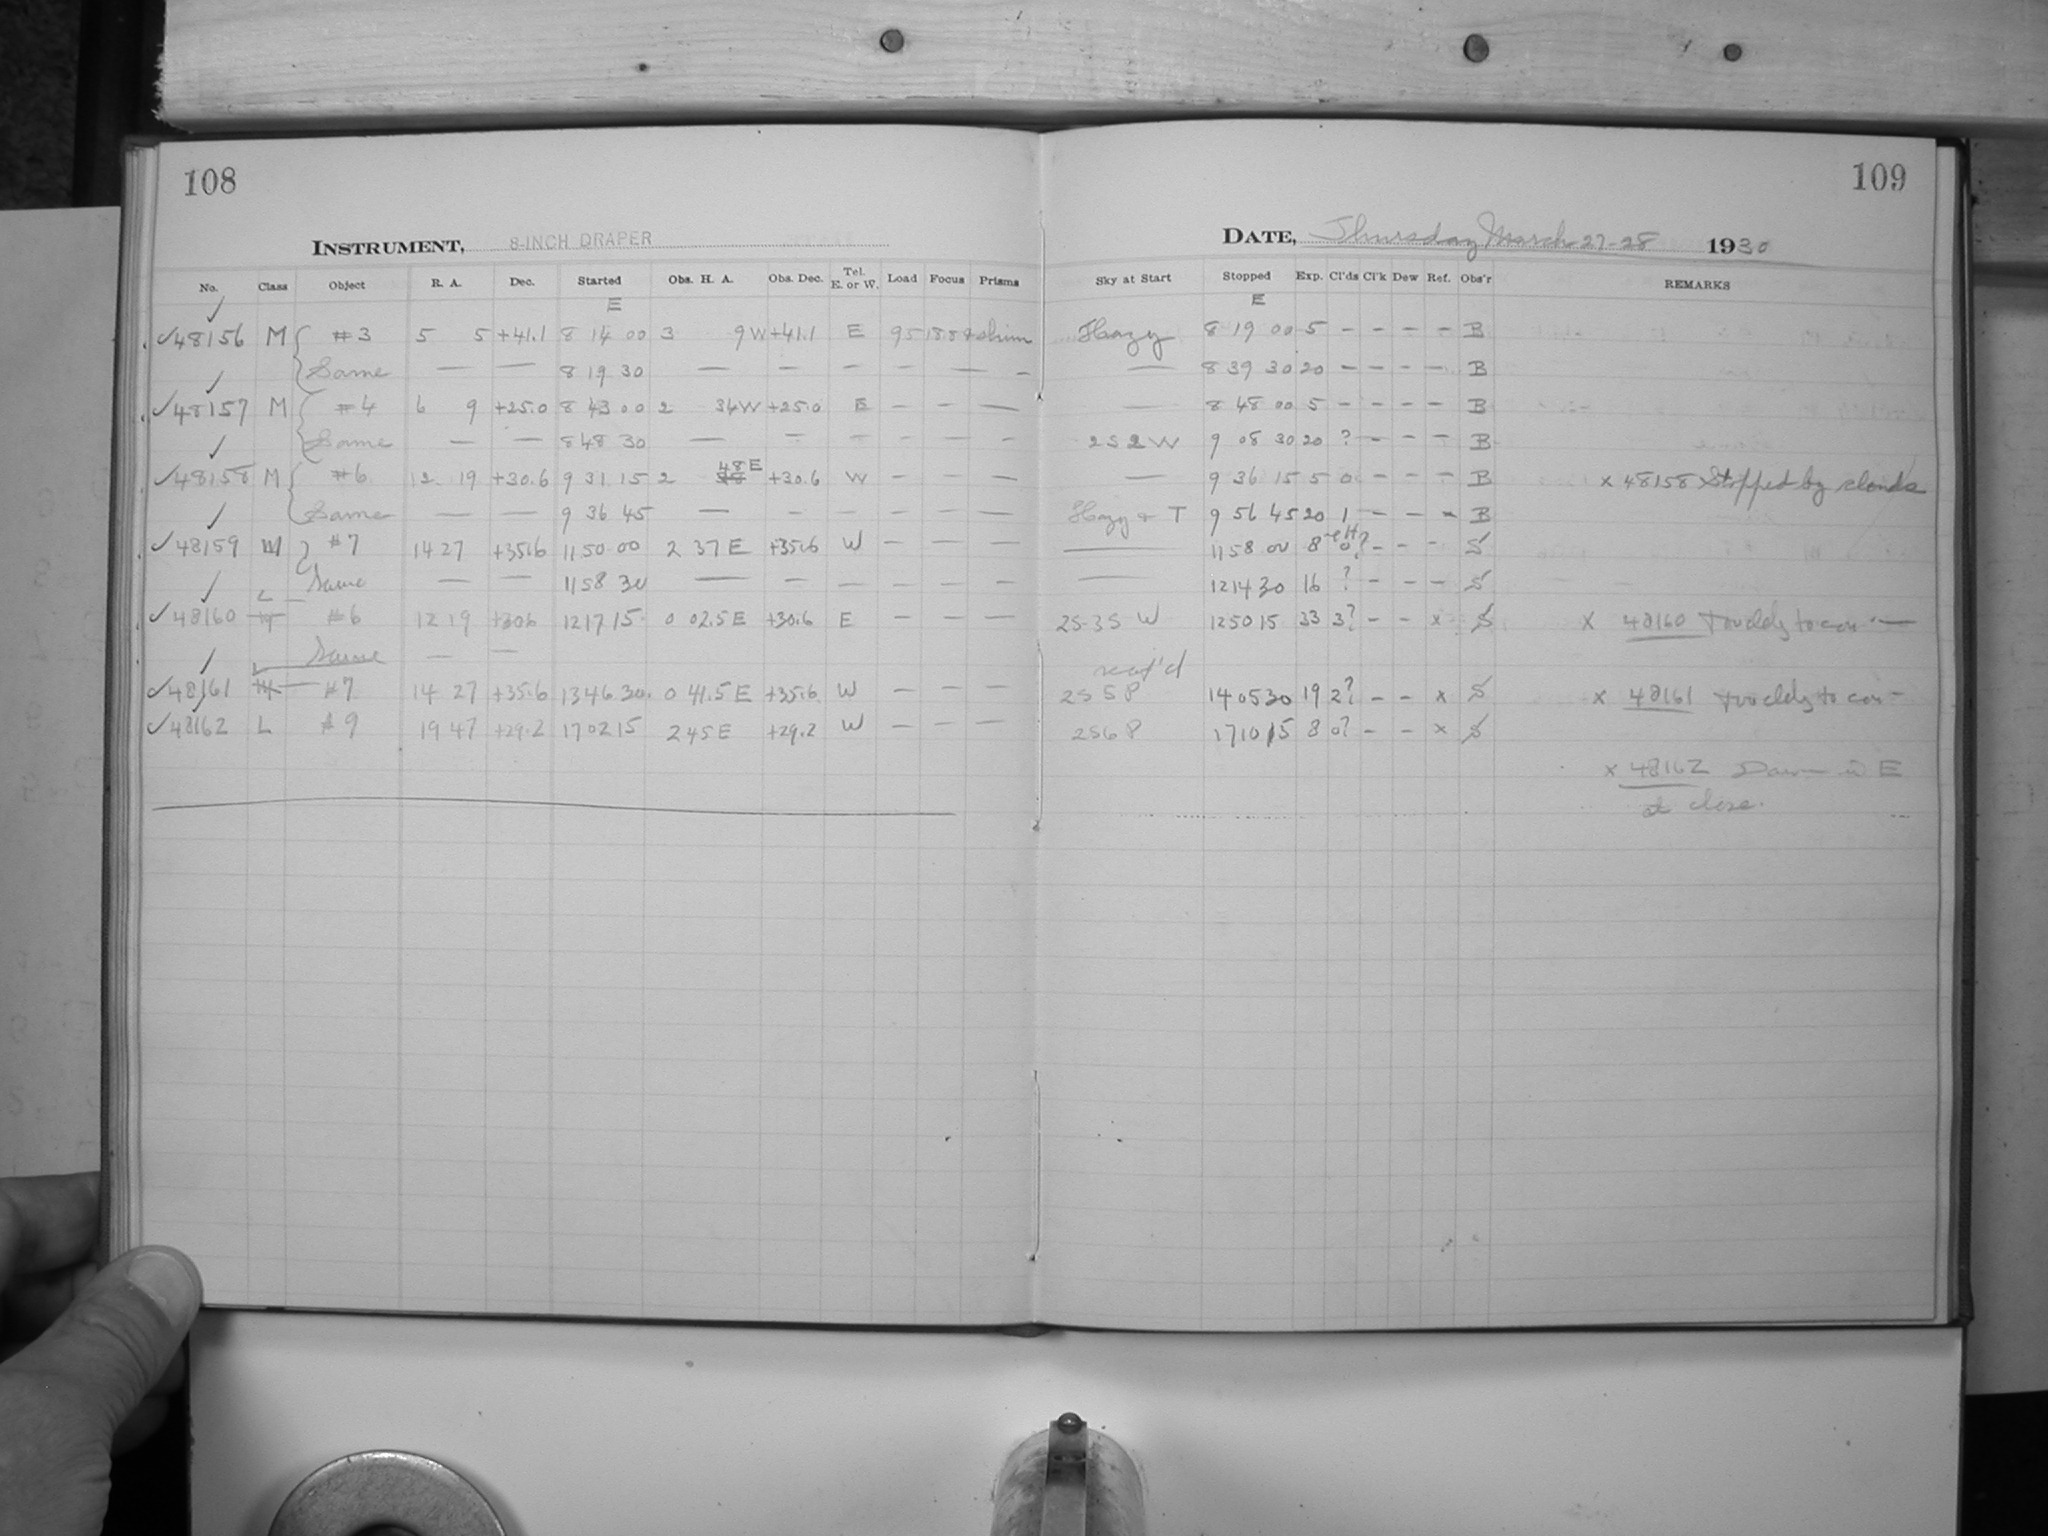 108
109
INSTRUMENT, 8-INCH DRAPER
DATE, Thursday March 27-28 1930
No. Class Object R. A. Dec. Started Obs. H. A. Obs. Dec. Tel. E. or W. Load Focus Prisms Sky at Start Stopped Exp. Cl'ds Cl'k Dew Ref. Obs'r REMARKS
E E
✓48156 M #3 5 5 +41.1 8 14 00 3 9 W +41.1 E 95 Hazy 8 19 00 5 – – – – B
Same — — 8 19 30 — – – – — – — 8 39 30 20 – – – – B
✓48157 M #4 6 9 +25.0 8 43 00 2 34 W +25.0 E – – — — 8 48 00 5 – – – – B
Same — — 8 48 30 — – – – – – 2S2W 9 08 30 20 ? – – – B
✓48158 M #6 12 19 +30.6 9 31 15 2 48 E +30.6 W – – – — 9 36 15 5 0 – – – B × 48158 Stopped by clouds
Same — — 9 36 45 — – – – – — Hazy + T 9 56 45 20 1 – – – B
✓48159 M #7 14 27 +35.6 11 50 00 2 37 E +35.6 W – – – — 11 58 00 8 0? – – – S
Same — — 11 58 30 — – – – – – — 12 14 30 16 ? – – – S
✓48160 L #6 12 19 +30.6 12 17 15 0 02.5 E +30.6 E – – – 2S-3S W 12 50 15 33 3? – – × S × 48160 Too cldy to con —
Same — —
✓48161 L #7 14 27 +35.6 13 46 30 0 41.5 E +35.6 W – – – 2S5P 14 05 30 19 2? – – × S × 48161 too cldy to con –
✓48162 L #9 19 47 +29.2 17 02 15 2 45 E +29.2 W – – – 2S6P 17 10 15 8 0? – – × S
× 48162 Dawn in E
at close.